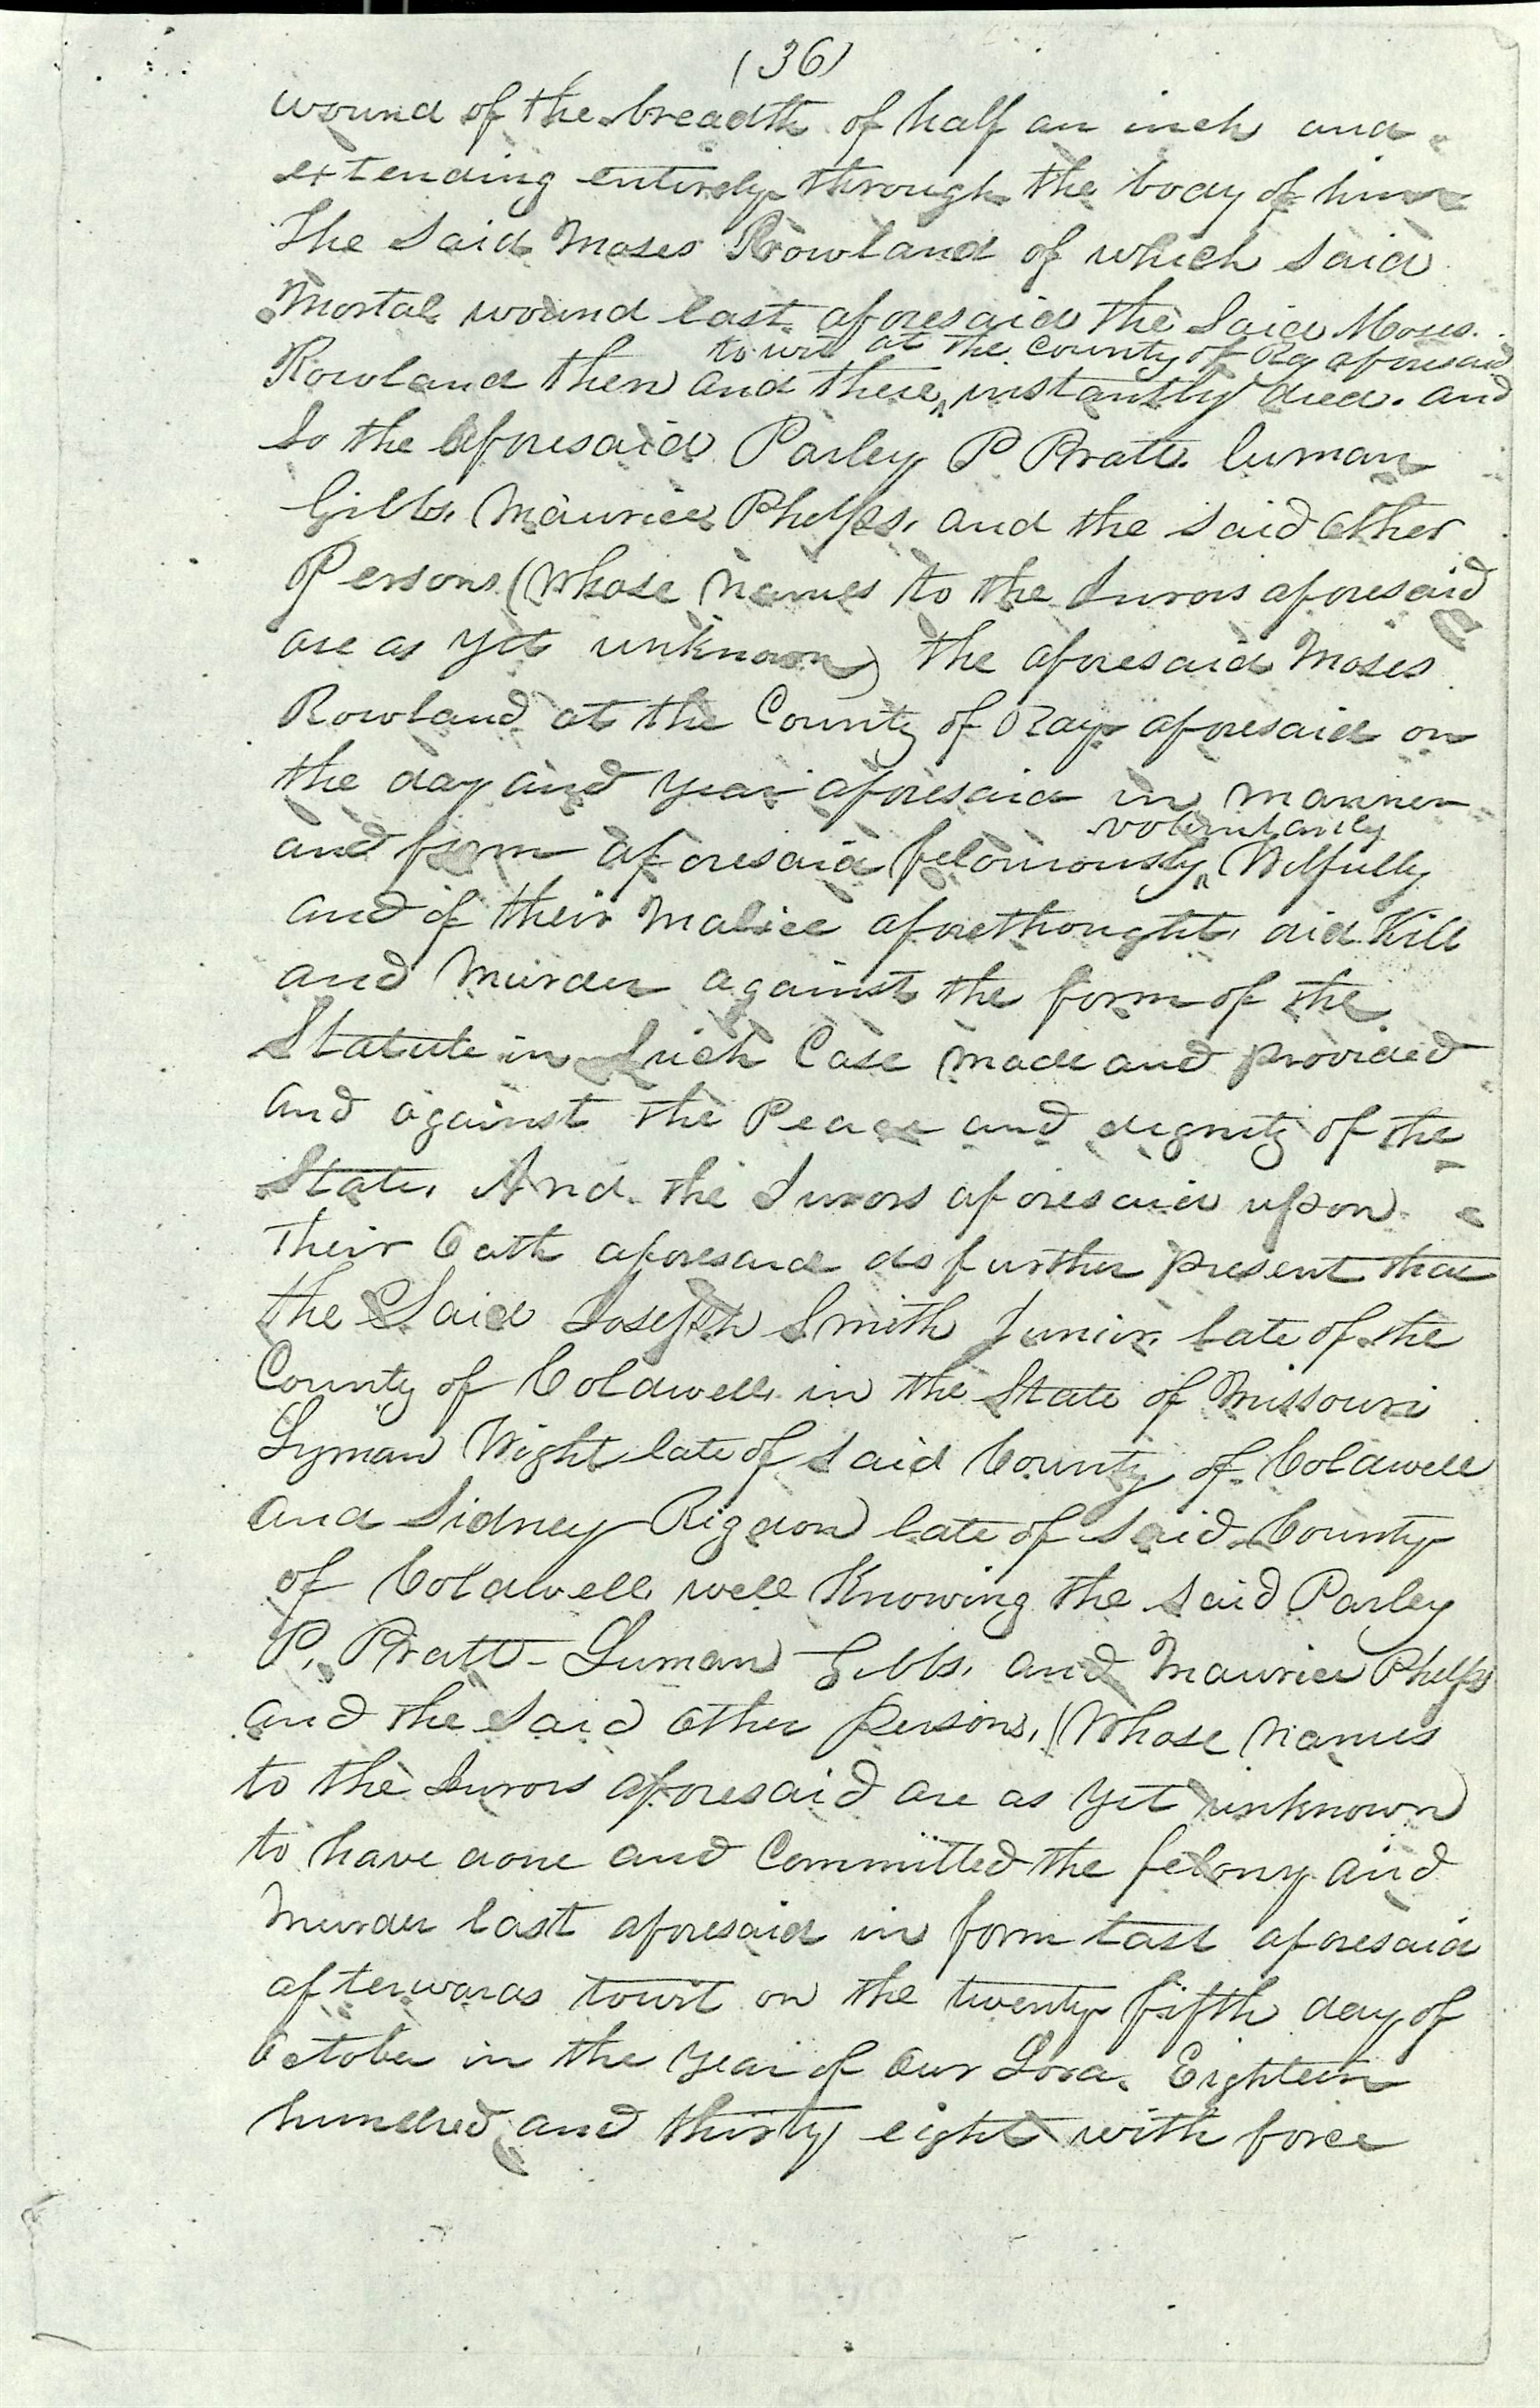 (36)
wound of the breadth of half an inch and
extending entirely through the body of him
The Said Moses Rowland of which Said
Mortal wound last aforesaid the Said Moses
to wit at the County of Ray aforesaid
Rowland then and there ^ instantly died. and
So the aforesaid Parley P Pratt. Luman
Gibbs, Maurice Phelps, and the said other
Persons (Whose Names to the Jurors aforesaid
are as yet unknown) the aforesaid Moses
Rowland at the County of Ray aforesaid on
the day and year aforesaid in manner
voluntarily
and form aforesaid feloniously ^ Wilfully
and of their Malice aforethought, did Kill
and Murder against the form of the
Statute in Such Case made and provided
and against the Peace and dignity of the
State, And the Jurors aforesaid upon
Their Oath aforesaid do further present that
the Said Joseph Smith Junior, late of the
County of Coldwell in the State of Missouri
Lyman Wight late of said County of Coldwell
and Sidney Rigdon late of said County
of Coldwell well Knowing the said Parley
P. Pratt - Luman Gibbs, and Maurice Phelps
and the said other persons, (Whose Names
to the Jurors aforesaid are as yet unknown)
to have done and Committed the felony and
Murder last aforesaid in form last aforesaid
afterwards towit on the twenty fifth day of
October in the year of our Lord. Eighteen
hundred and thirty eight with force